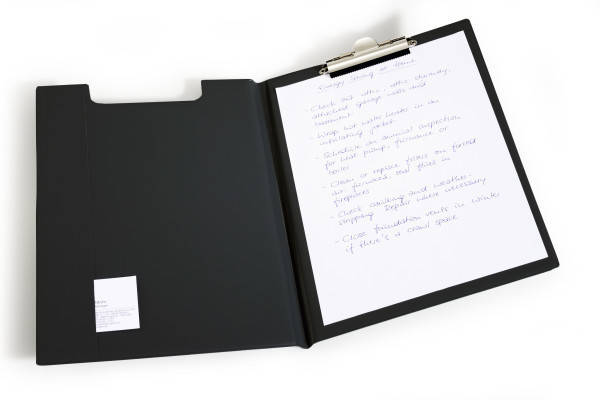 Energy Saving at Home
- Check out attic, attic stairway,
attached garage walls and
basement
- Wrap hot water heater in an
insulating jacket
- Schedule an annual inspection
for heat pump, furnace or
boiler
- Clean or replace filters on forced
air furnaces, seal flues in
fireplaces
- Check caulking and weather-
stripping. Repair where necessary
- Close foundation vents in winter
if there's a crawl space